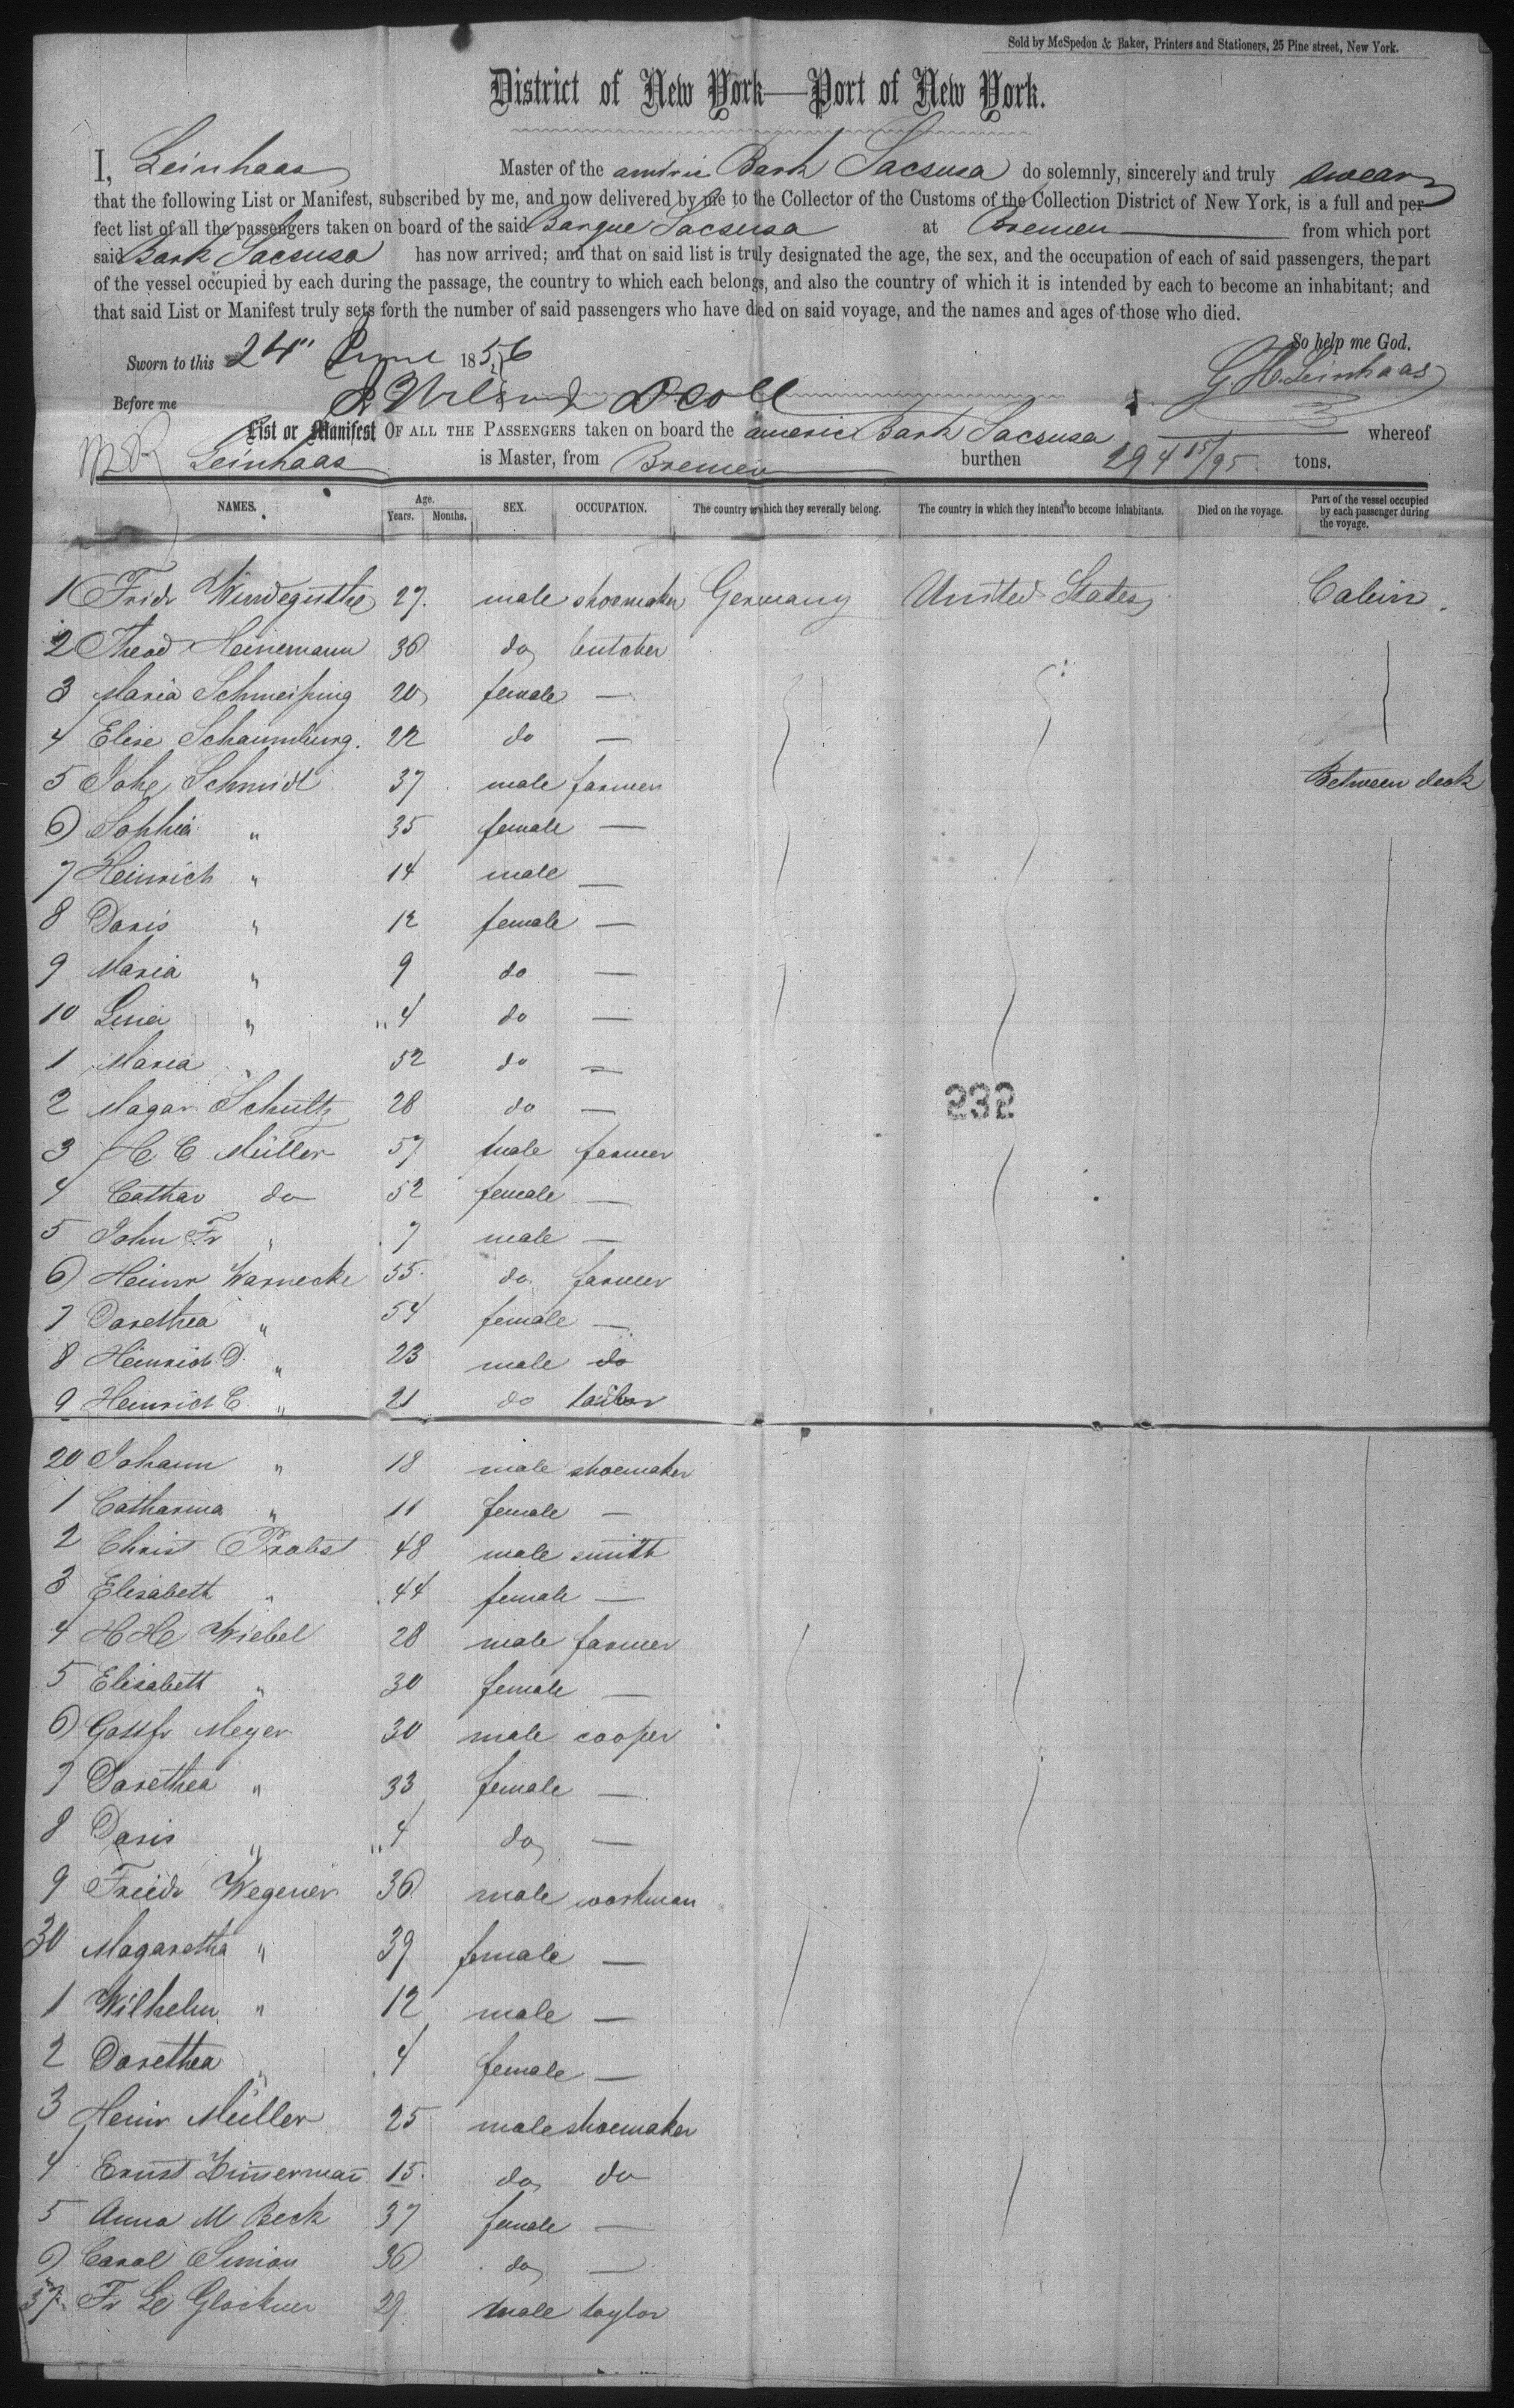 Sold by McSpedon & Baker, Printers and Stationers, 25 Pine street, New York.
District of New York—Port of New York.
I, Leinhaas Master of the Bark Sacsusa do solemnly, sincerely and truly swear
that the following List or Manifest, subscribed by me, and now delivered by me to the Collector of the Customs of the Collection District of New York, is a full and per-
fect list of all the passengers taken on board of the said Barque Sacsusa at Bremen from which port
said Bark Sacsusa has now arrived; and that on said list is truly designated the age, the sex, and the occupation of each of said passengers, the part
of the vessel occupied by each during the passage, the country to which each belongs, and also the country of which it is intended by each to become an inhabitant; and
that said List or Manifest truly sets forth the number of said passengers who have died on said voyage, and the names and ages of those who died.
So help me God.
Sworn to this 24" June 1856
G H Leinhaas
Before me
List or Manifest OF ALL THE PASSENGERS taken on board the americ Bark Sacsusa whereof
Leinhaas is Master, from Bremen burthen 294 15/95 tons.
NAMES. Age. Years. Months. SEX. OCCUPATION. The country to which they severally belong. The country in which they intend to become inhabitants. Died on the voyage. Part of the vessel occupied by each passenger during the voyage.
1 Fridr 27. male shoemaker Germany United States Cabin
2 Theod Heinemann 36 do butcher
3 Maria 20 female —
4 Elise Schaumburg. 22 do —
5 Joh Schmidt 37 male farmer Between deck
6 Sophia " 35 female —
7 Heinrich " 14 male —
8 Doris " 12 female —
9 Maria " 9 do —
10 Lina " " 4 do —
1 Maria " 52 do —
2 Magar Schultz 28 do —
3 H C Müller 57 male farmer
4 Cathar do 52 female —
5 John Fr " 7 male —
6 Heinr Warnecke 55 do farmer
7 Dorethea " 54 female —
8 Heinrich D. " 23 male do
9 Heinrich C. " 21 do tailor
232
20 Johann " 18 male shoemaker
1 Catharina " 11 female —
2 Christ Probst 48 male smith
3 Elisabeth " 44 female —
4 H H Wiebel 28 male farmer
5 Elisabett " 30 female —
6 Gottfr Meyer 30 male cooper
7 Dorethea " 33 female —
8 Doris " " 4 do —
9 Friedr Wegener 36 male workman
30 Magaretha " 39 female —
1 Wilhelm " 12 male —
2 Dorethea " 4 female —
3 Heinr Müller 25 male shoemaker
4 Ernst Zimerman 15. do do
5 Anna M Beck 37 female —
6 Carol Simon 36 do —
37 Fr Glockner 29 male taylor